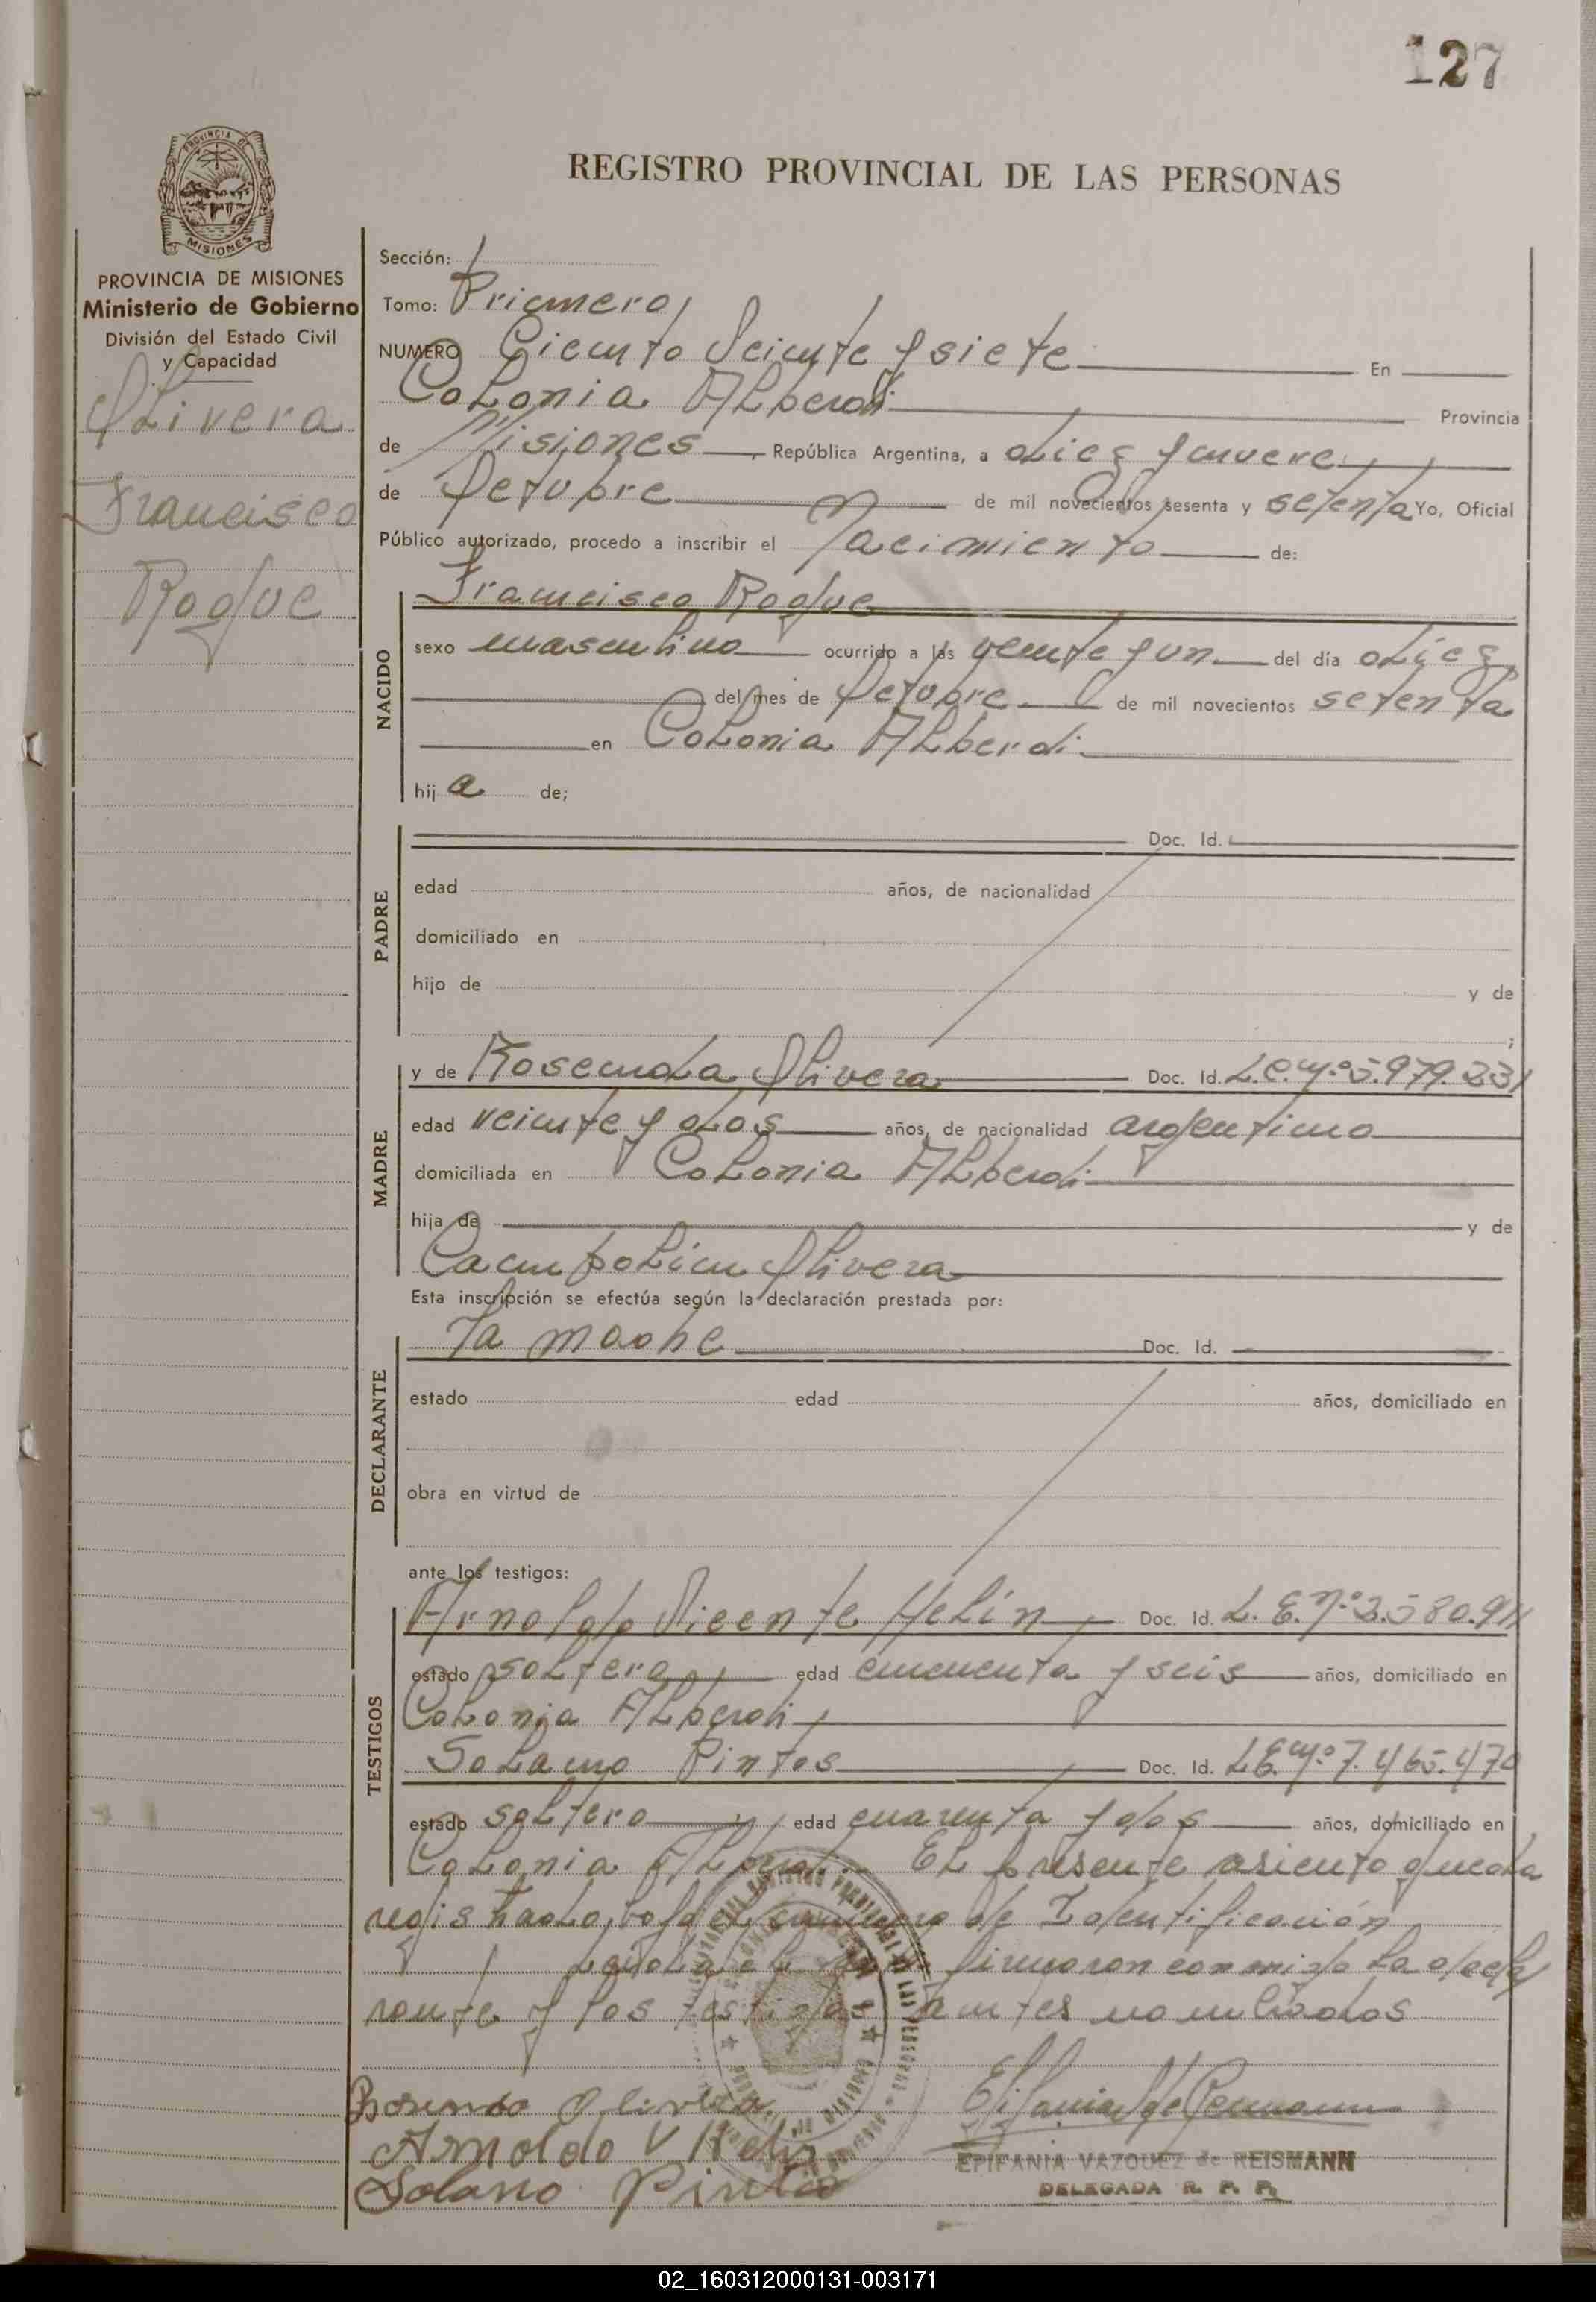 127
PROVINCIA DE
MISIONES
REGISTRO PROVINCIAL DE LAS PERSONAS
PROVINCIA DE MISIONES
Ministerio de Gobierno
División del Estado Civil
y Capacidad
Olivera
Francisco
Roque
Sección:
Tomo: Primero
NUMERO Ciento Veinte y siete En
Colonia Alberdi Provincia
de Misiones República Argentina, a diez y nueve
de Octubre de mil novecientos sesenta y setenta Yo, Oficial
Público autorizado, procedo a inscribir el Nacimiento de:
NACIDO
Francisco Roque
sexo masculino ocurrido a las veinte y un del día diez
del mes de Octubre de mil novecientos setenta
en Colonia Alberdi
hij a de;
PADRE
Doc. Id.
edad años, de nacionalidad
domiciliado en
hijo de y de
;
MADRE
y de Rosenda Olivera Doc. Id. L.C. Nº 5.979.231
edad veinte y dos años, de nacionalidad argentino
domiciliada en Colonia Alberdi
hija de y de
Campolin Olivera
Esta inscripción se efectúa según la declaración prestada por:
DECLARANTE
la madre Doc. Id.
estado edad años, domiciliado en
obra en virtud de
ante los testigos:
TESTIGOS
Arnoldo Vicente Helín Doc. Id. L.E. Nº 2.580.911
estado soltero edad cincuenta y seis años, domiciliado en
Colonia Alberdi
Solano Pintos Doc. Id. L.E. Nº 7.465.470
estado soltero edad cuarenta y dos años, domiciliado en
Colonia Alberdi. El presente asiento queda
registrado bajo el número de Identificación
Leida el firmaron conmigo la decla
rante y los testigos antes nombrados
Rosenda Olivera
Arnoldo V Helin
Solano Pinto
EPIFANIA VAZQUEZ de REISMANN
DELEGADA R. P. P.
02_160312000131-003171